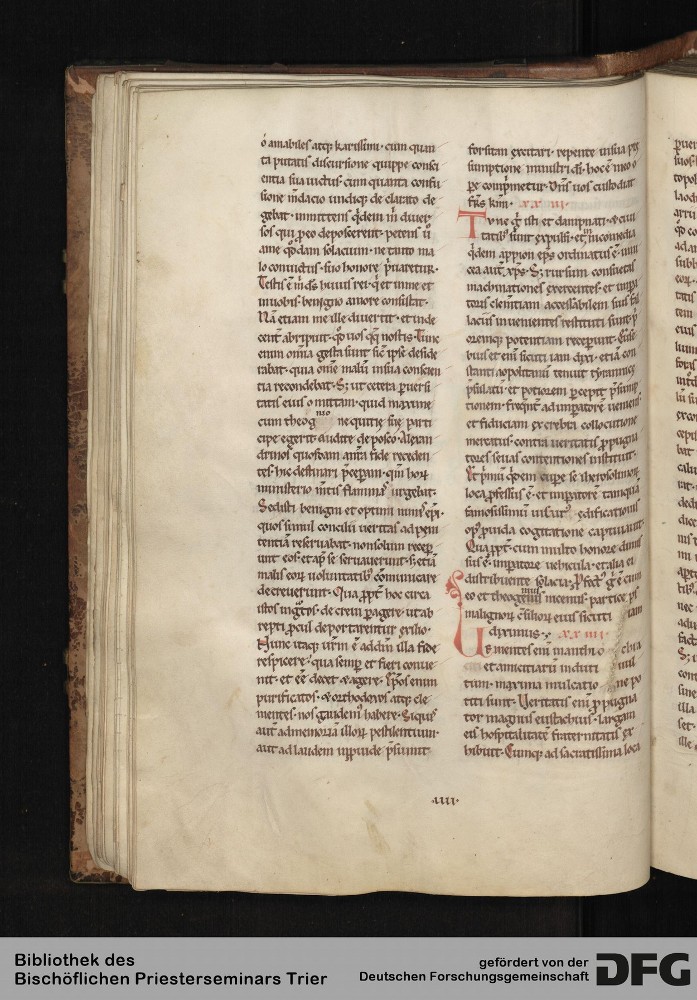 ó amabiles atq; karissimi· cum quan
ta putatis discursione quippe consci
entia sua uictus· cum quanta confu
sione mdacio undiq; de clarato de
gebat· inmittens qdem in diuer
sos qui p eo deposcerent· petens ũ
ame qdam solacium· ne tanto ma
lo conuictus· suo honore puaretur·
Testis ẽ ds huius rei· q̇ et inme et
inuobis· benigno amore consistit·
Nã etiam me ille diuertit· et inde
cent abripuit· qo uos qq; nostis· Tunc
enim omia gesta sunt sic ipse deside
rabat· quia omẽ malũ insua conscien
tia recondebat· S; ut cetera peruersi
tatis eius omittam· quid maxime
cum theog nio nequitie sue parti
cipe egerit· audite deposco· Alexan
drinos quosdam a nra fide receden
tes· huc destinari pceperam· qm hoꝝ
ministerio intis flamma urgebat·
Sed isti benigni et optimi nimis epi·
quos simul concilii ueritas ad peni
tentiã reseruabat· non solum recep
unt eos· et aput se seruauerunt· s; etiã
malis eoꝝ uoluntatib; cõmunicare
decreuerunt· Qua ppt hoc circa
istos ingtos· decreui pagere· ut ab
repti pcul deportarentur exilio·
Nunc itaq; urm ẽ addm illa fide
respicere· qua semp et fieri conue
nit· et eẽ decet· ex agere· ipsos enim
purificatos· ex orthodoxos atq; cle
mentes· nos gaudem habere· Siquis
aut admemoriã illoꝝ pestilentium·
aut ad laudem improuide psumit
forsitan excitari· repente insua psũ
sumptione ministri di· hoc ẽ meo o
pe comprimetur· Dns uos custodiat
frs kmi· XXIII·
Tunc g isti et dampnati· ex ciui
tatib; sunt expulsi· et in nicomedia
qdem appion eps ordinatus ẽ· inni
cea aut xps· S; rursum consuetas
machinationes exercentes· et impa
toris clementiam accessabilem suis fal
laciis inuenientes restituti sunt· p
oremq; potentiam receperunt· Euse
bius et eni sicuti iam dixi· etiã con
stantinopolitanũ tenuit tyrannice
psulatũ· et potiorem pcepit psump
tionem· frequent ad impatore ueniens·
et fiduciam ex crebra collocutione
mercatus· contra ueritatis ppugna
tores seuas contentiones instituit·
Et pmũ qdem cupe se iherosolimoꝝ
loca pfessus ẽ· et impatore tamqua
famosissimũ uisurus edificationis
op; puida cogitatione captiuauit·
Qua ppt cum multo honore dimis
sus ẽ· impatore uehicula· et alia ei
distribuente solacia· p fect; g ẽ cum
eo et theogenius nicenus· particeps
malignoꝝ c̃silioꝝ eius sicuti iam
diximus· XXIIII·
Us mentes eni
et amicitiarũ induti
tum· maxima inulcatio ne po
titi sunt· Ueritatis eni ppugna
tor magnus eustachius· largam
eis hospitalitate fraternitatis ex
hibuit· Cumq; ad sacratissima loca
·IIII·
Bibliothek des
Bischöflichen Priesterseminars Trier
gefördert von der
Deutschen Forschungsgemeinschaft
DFG